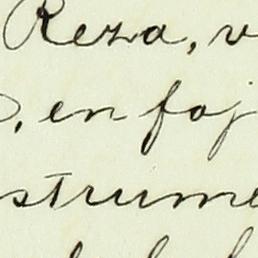 Reza, v
, en foj
strume